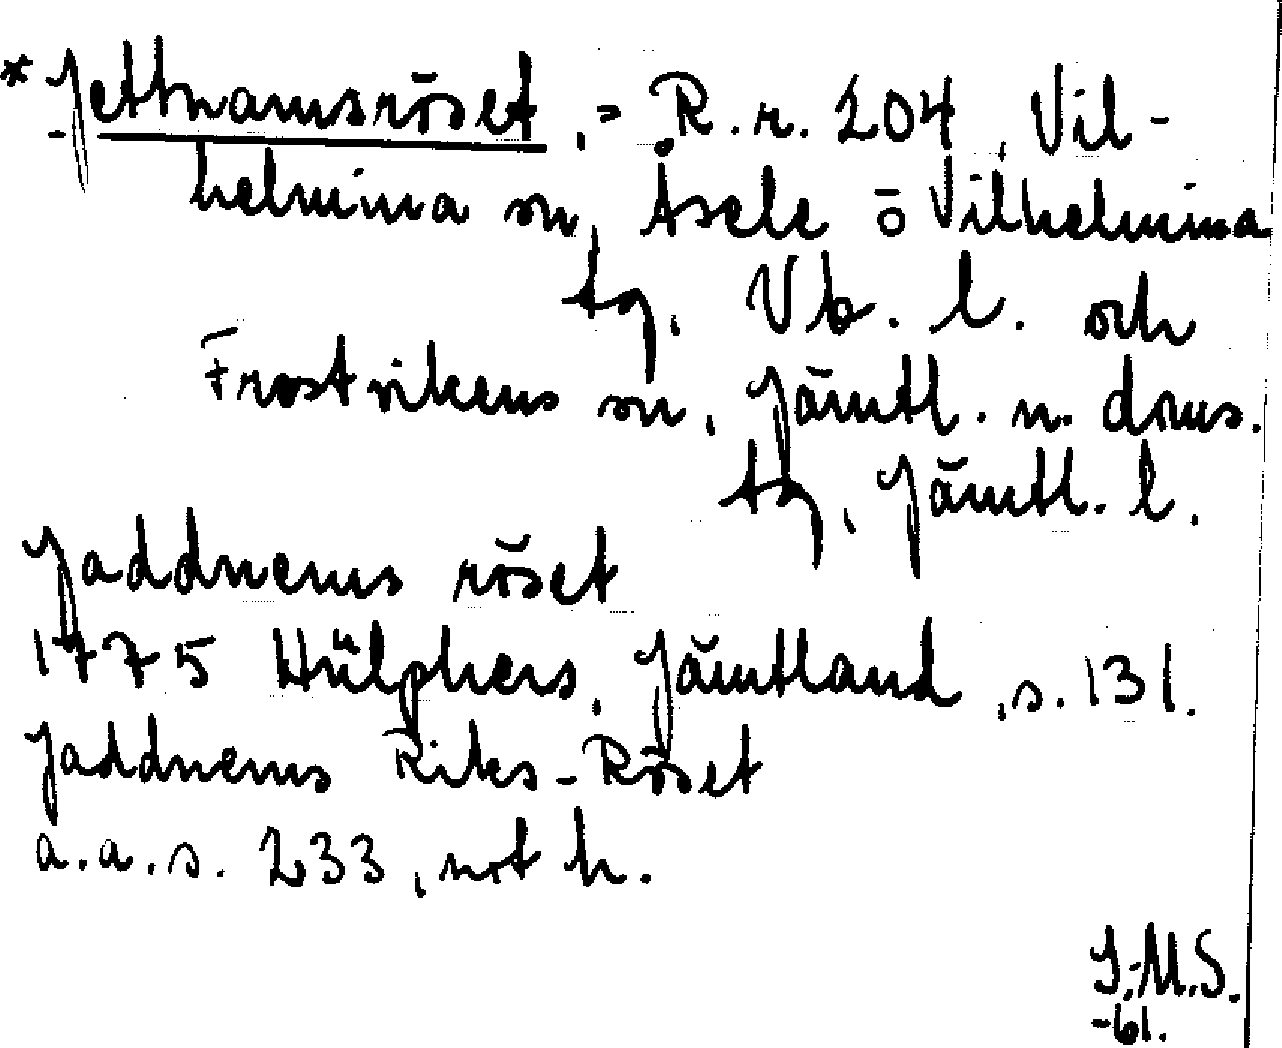 *Jettnamsröset, = R.r. 204, Vil-
helmina sn, Åsele o Vilhelmina
tg, Vb. l. och
Frostvikens sn, Jämtl. n. doms.
tg, Jämtl. l.
Jaddnems röset
1775 Hülphers, Jämtland, s. 131.
Jaddnems Riks-Röset
a.a.s. 233, not h.
I.-M.S.
-61.